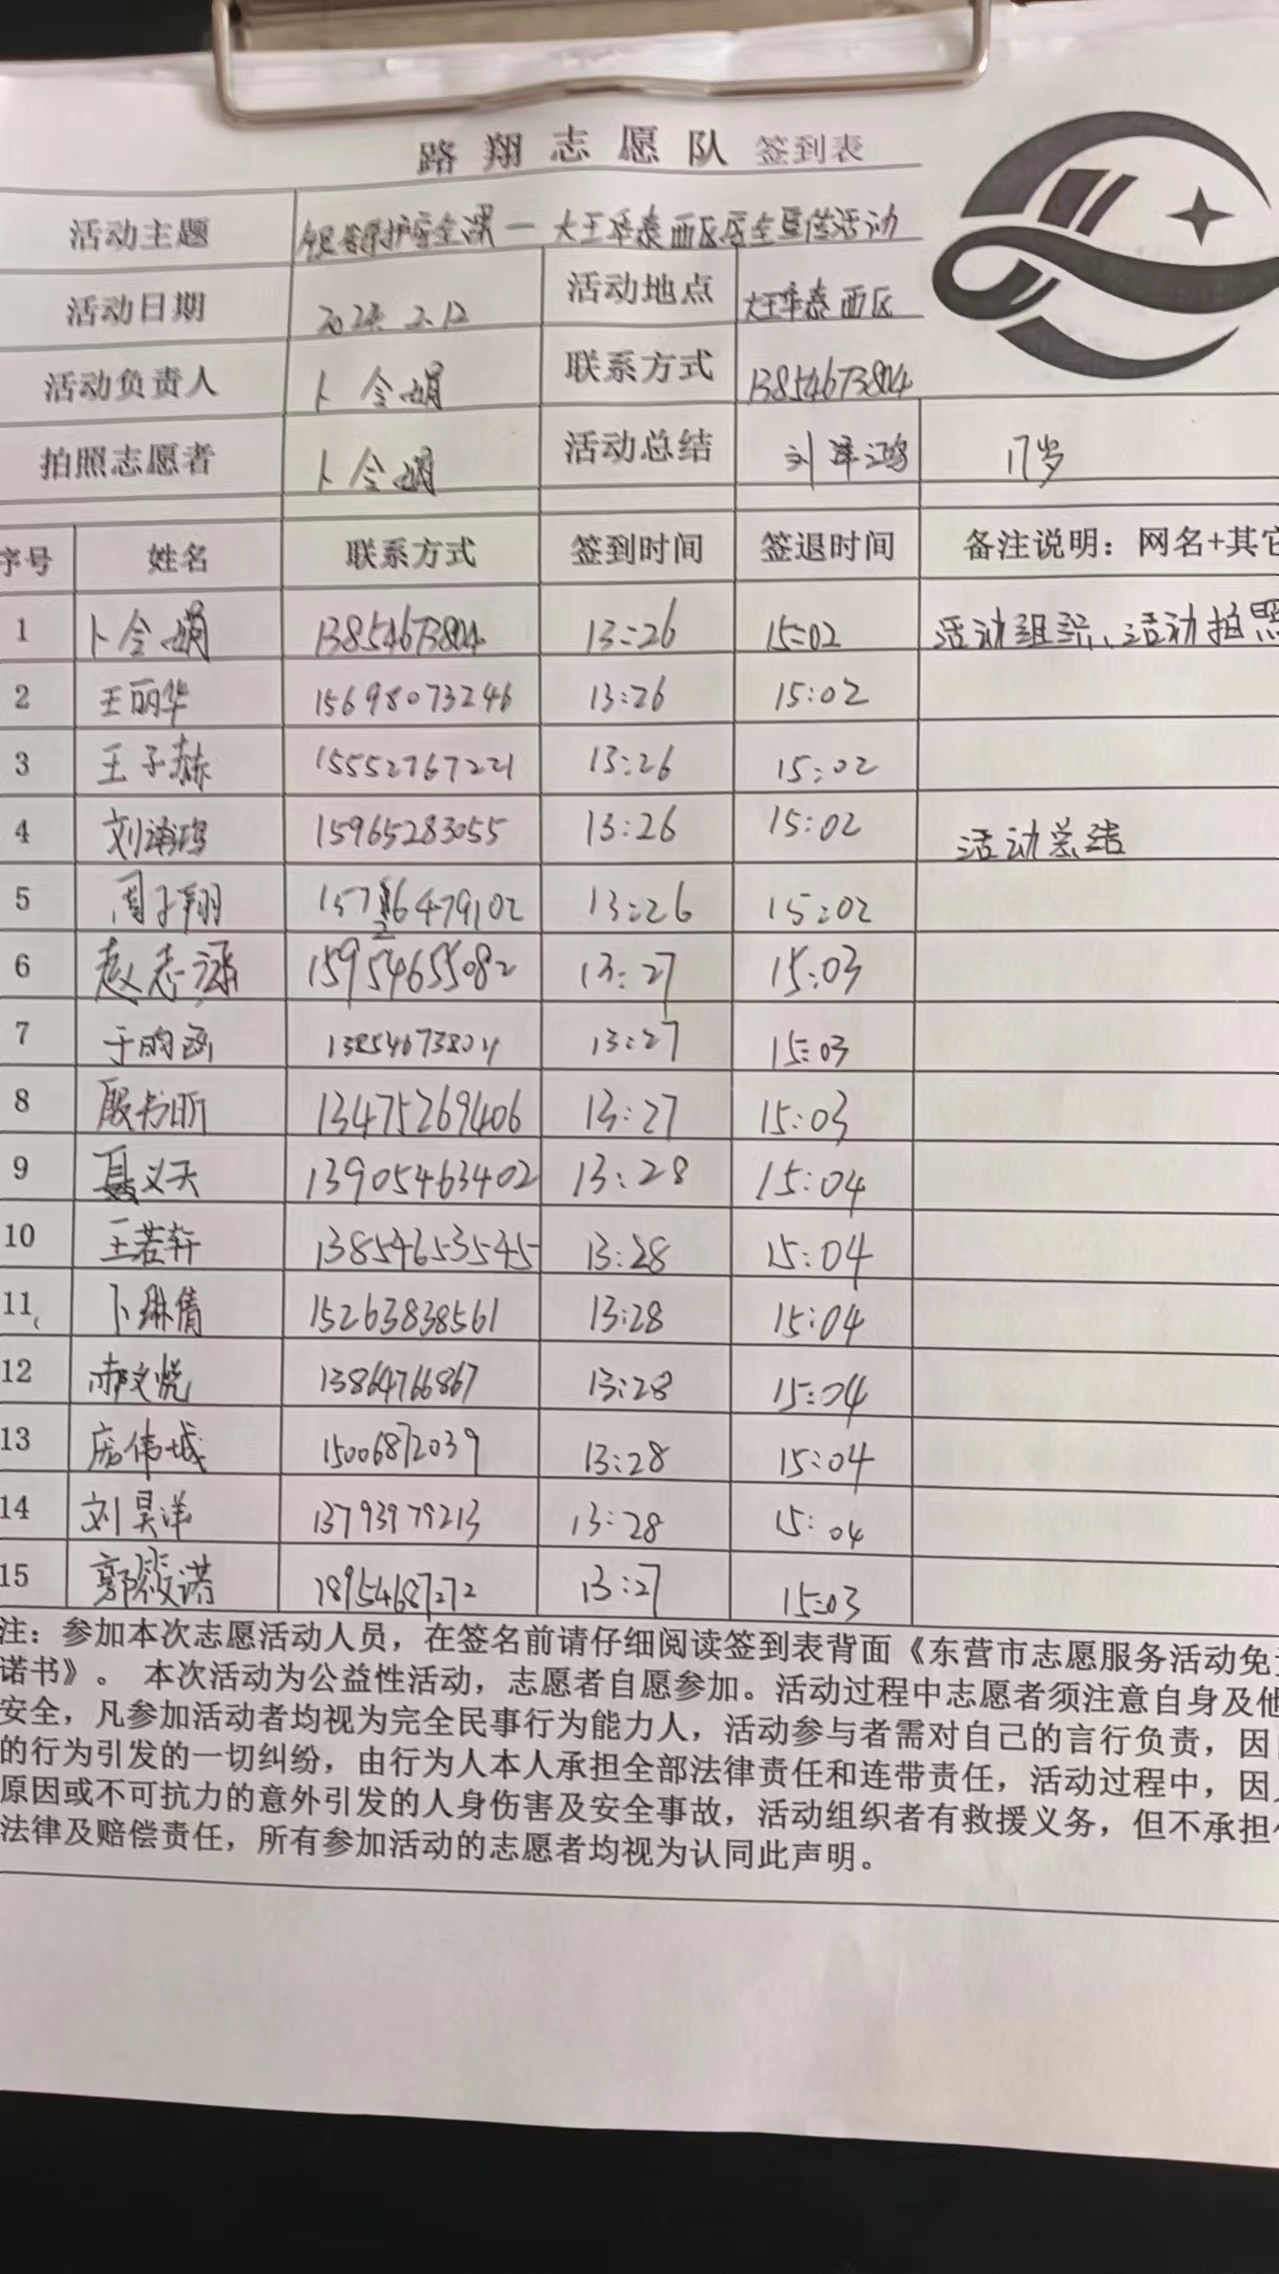 路翔志愿队 签到表
活动主题 大王华泰西区安全宣传活动
活动日期 2.12 活动地点 大王华泰西区
活动负责人 卜令娟 联系方式 13854673804
拍照志愿者 卜令娟 活动总结 刘 鸿 17岁
序号 姓名 联系方式 签到时间 签退时间 备注说明：网名+其它
1 卜令娟 13854673804 13:26 15:02 活动组织、活动拍照
2 王丽华 15698073246 13:26 15:02
3 王子赫 15552767221 13:26 15:02
4 刘 15965283055 13:26 15:02 活动总结
5 周子翔 13:26 15:02
6 赵志 15954655082 13:27 15:03
7 于 函 13854673804 13:27 15:03
8 殷书昕 13475269406 13:27 15:03
9 聂义天 13905463402 13:28 15:04
10 王若轩 13854653545 13:28 15:04
11 卜琳倩 15263838561 13:28 15:04
12 郝文悦 13864766867 13:28 15:04
13 庞伟城 15006872039 13:28 15:04
14 刘昊洋 13793979213 13:28 15:04
15 郭筱诺 18954687272 13:27 15:03
注：参加本次志愿活动人员，在签名前请仔细阅读签到表背面《东营市志愿服务活动免
诺书》。 本次活动为公益性活动，志愿者自愿参加。活动过程中志愿者须注意自身及他
安全，凡参加活动者均视为完全民事行为能力人，活动参与者需对自己的言行负责，因
的行为引发的一切纠纷，由行为人本人承担全部法律责任和连带责任，活动过程中，因
原因或不可抗力的意外引发的人身伤害及安全事故，活动组织者有救援义务，但不承担
法律及赔偿责任，所有参加活动的志愿者均视为认同此声明。